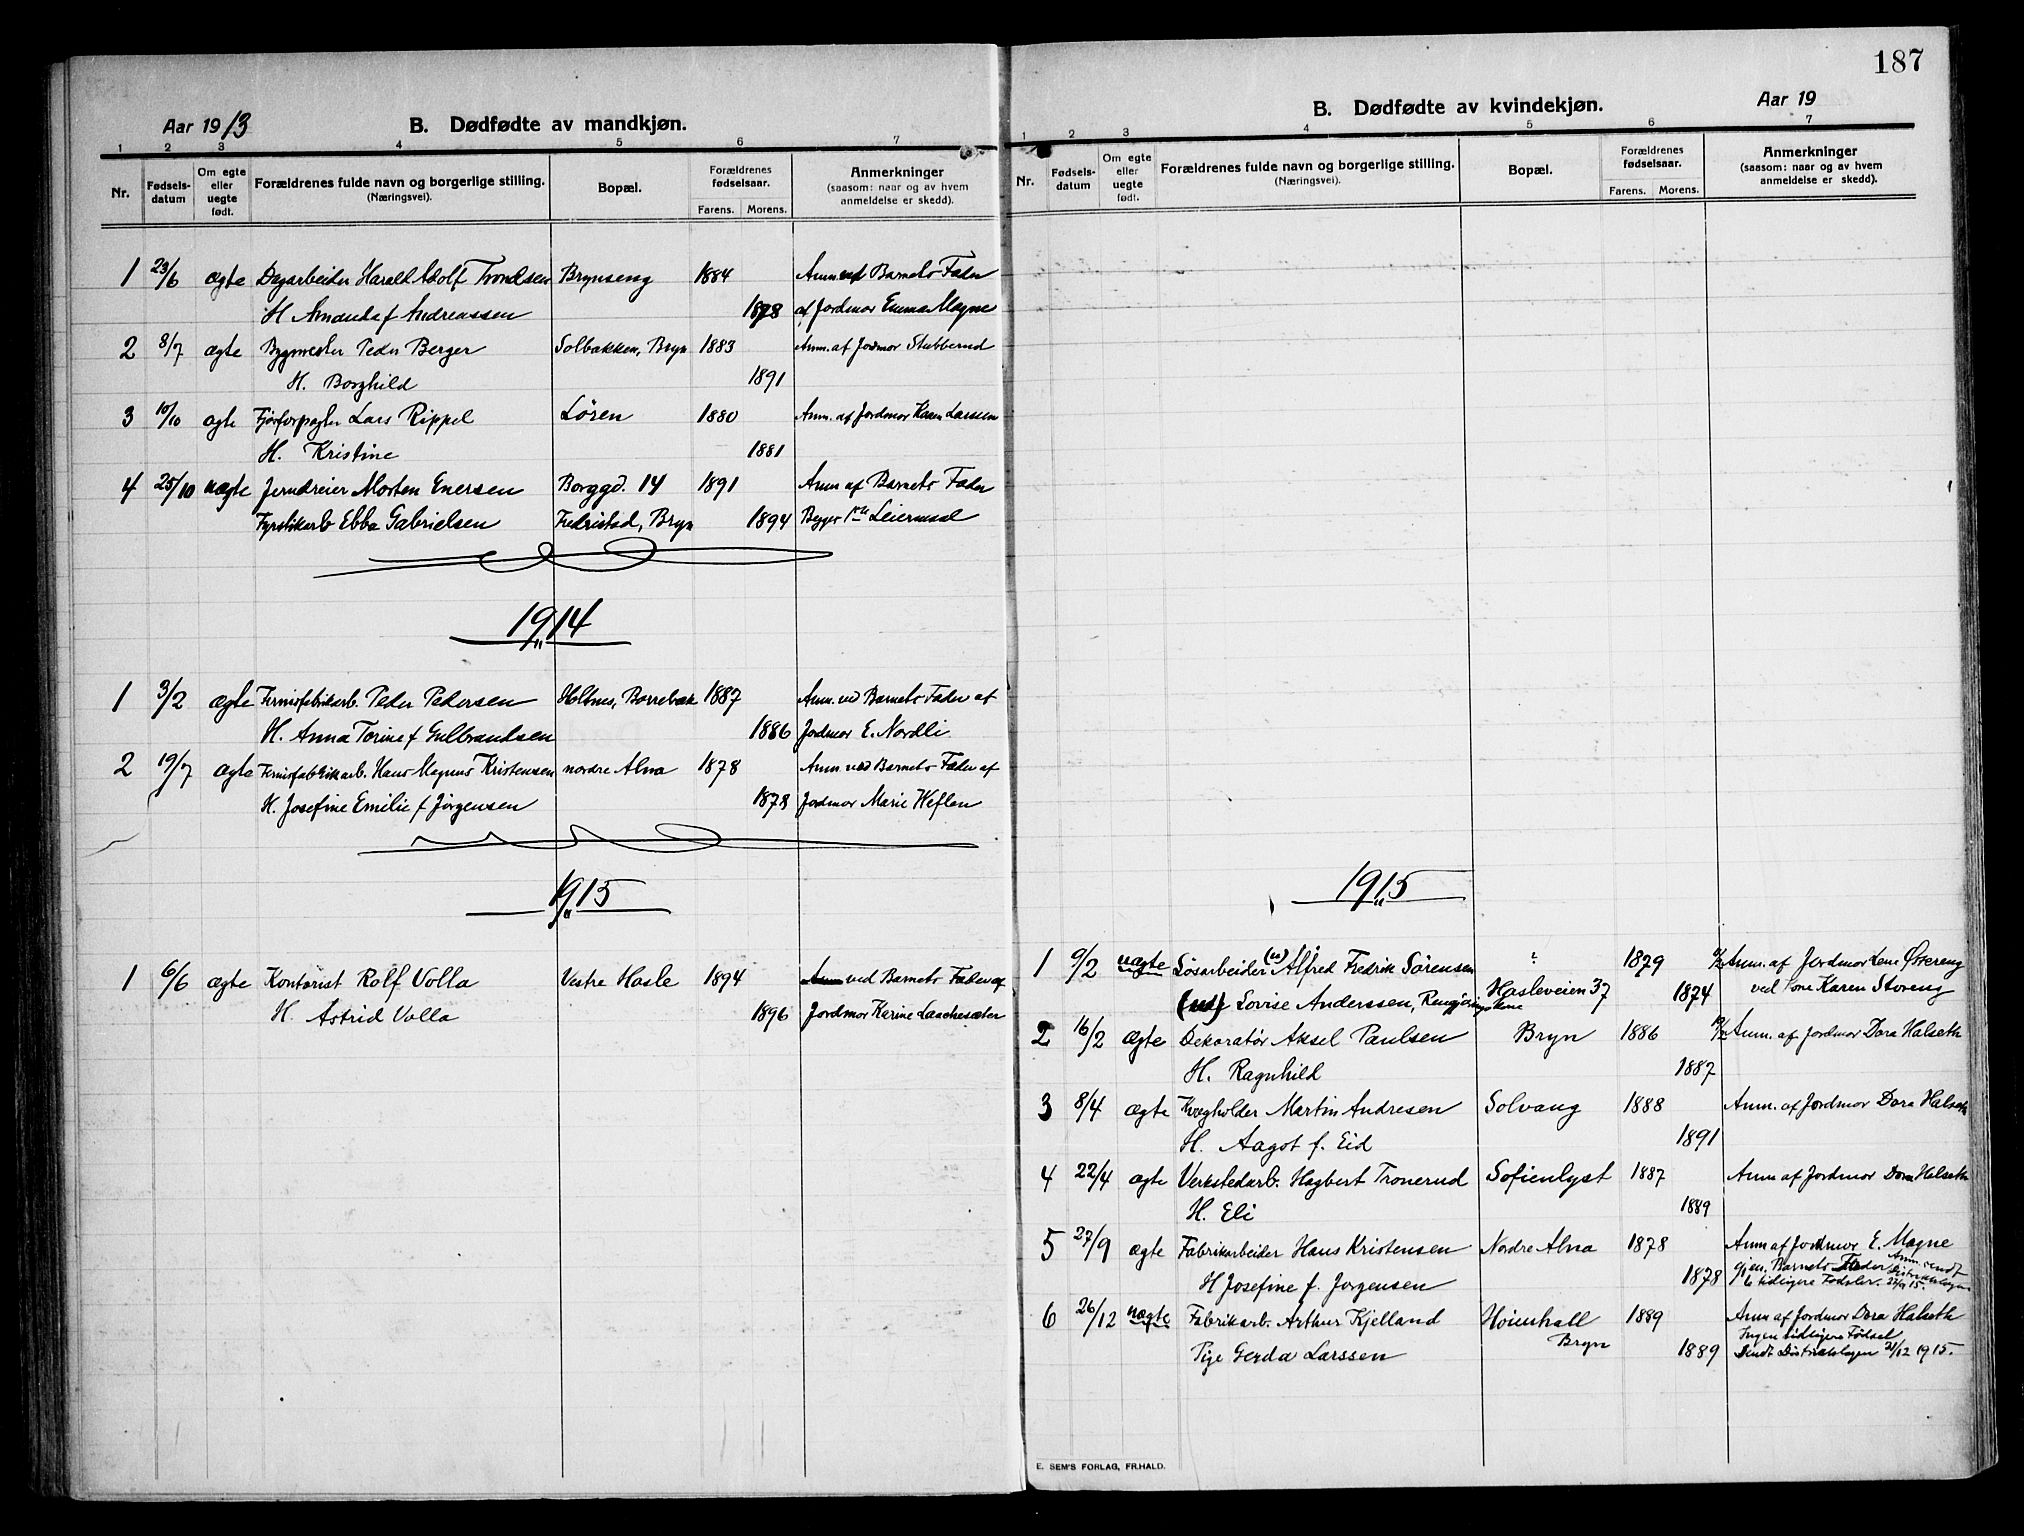 Aar 1913
B. Dødfødte av mandkjøn.
1 2 3 4 5 6 7
Nr.
Fødsels-
datum
Om egte
eller
uegte
født.
Forældrenes fulde navn og borgerlige stilling.
(Næringsvei).
Bopæl.
Forældrenes
fødselsaar.
Farens. Morens.
Anmerkninger
(saasom: naar og av hvem
anmeldelse er skedd).
1 23/6 ægte Dagarbeider Harald Adolf Trondsen Brynseng 1884 Anm ved Barnets Fader
H. Amanda f Andreassen 1878 af Jordmor Emma Magne
2 8/7 ægte Bygmester Peder Berger Solbakken, Bryn 1883 Anm. af Jordmor Stubberud
H. Borghild 1891
3 10/10 ægte Lars Rippel Løren 1880 Anm. af Jordmor Karen Larssen
H. Kristine 1881
4 25/10 uægte Jerndreier Morten Enersen Borggd. 14 1891 Anm af Barnets Fader
Fyrstikarb Ebba Gabrielsen Fredristad, Bryn 1894 Begges 1ste Leiermaal
1914
1 3/2 ægte Fernisfabrikarb. Peder Pedersen Holtnes, Borrebæk 1887 Anm. ved Barnets Fader af
H. Anna Torine f Gulbrandsen 1886 Jordmor E. Nordli
2 19/7 ægte Fernisfabrikarb. Hans Magnus Kristensen nordre Alna 1878 Anm. ved Barnets Fader af
H. Josefine Emilie f Jørgensen 1878 Jordmor Marie Heflen
1915
1 6/6 ægte Kontorist Rolf Volla Vestre Hasle 1894 Anm ved Barnets Fader af
H. Astrid Volla 1896 Jordmor Karine
187
B. Dødfødte av kvindekjøn.
Aar 19
1 2 3 4 5 6 7
Nr.
Fødsels-
datum
Om egte
eller
uegte
født.
Forældrenes fulde navn og borgerlige stilling.
(Næringsvei).
Bopæl.
Forældrenes
fødselsaar.
Farens. Morens.
Anmerkninger
(saasom: naar og av hvem
anmeldelse er skedd).
1915
1 9/2 uægte Løsarbeider Alfred Fredrik Sørensen 1879 Anm. af Jordmor Lene Østereng
Lovise Anderssen, Hasleveien 37 1874 ved Karen Storeng
2 16/2 ægte Dekoratør Aksel Paulsen Bryn 1886 Anm. af Jordmor Dora Halseth
H. Ragnhild 1887
3 8/4 ægte Kvægholder Martin Andresen Solvang 1888 Anm. af Jordmor Dora Halseth
H. Aagot f. Eid 1891
4 22/4 ægte Verkstedarb. Hagbert Tronerud Sofienlyst 1887 Anm af Jordmor Dora Halseth
H. Eli 1889
5 27/9 ægte Fabrikarbeider Hans Kristensen Nordre Alna 1878 Anm af Jordmor E. Magne
H Josefine f. Jørgensen 1878 gjen. Barnets Fader Anm. sendt
6 tidligere Fødsler. Distriktslægen 27/9 15.
6 26/12 uægte Fabrikarb. Arthur Kjelland Høienhall 1889 Anm af Jordmor Dora Halseth
Bryn Ingen tidligere Fødsel
Pige Gerda Larssen 1889 Sendt Distriktslægen 31/12 1915.
E. SEM'S FORLAG, FR.HALD.